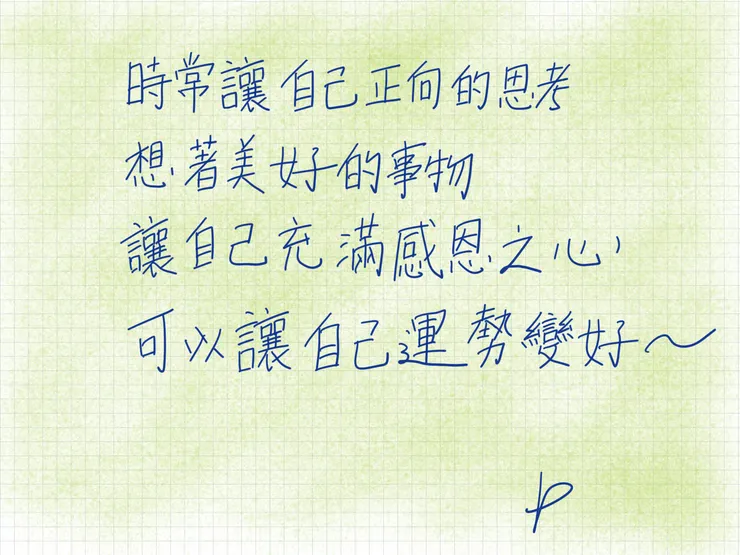 時常讓自己正向的思考
想著美好的事物
讓自己充滿感恩之心，
可以讓自己運勢變好～